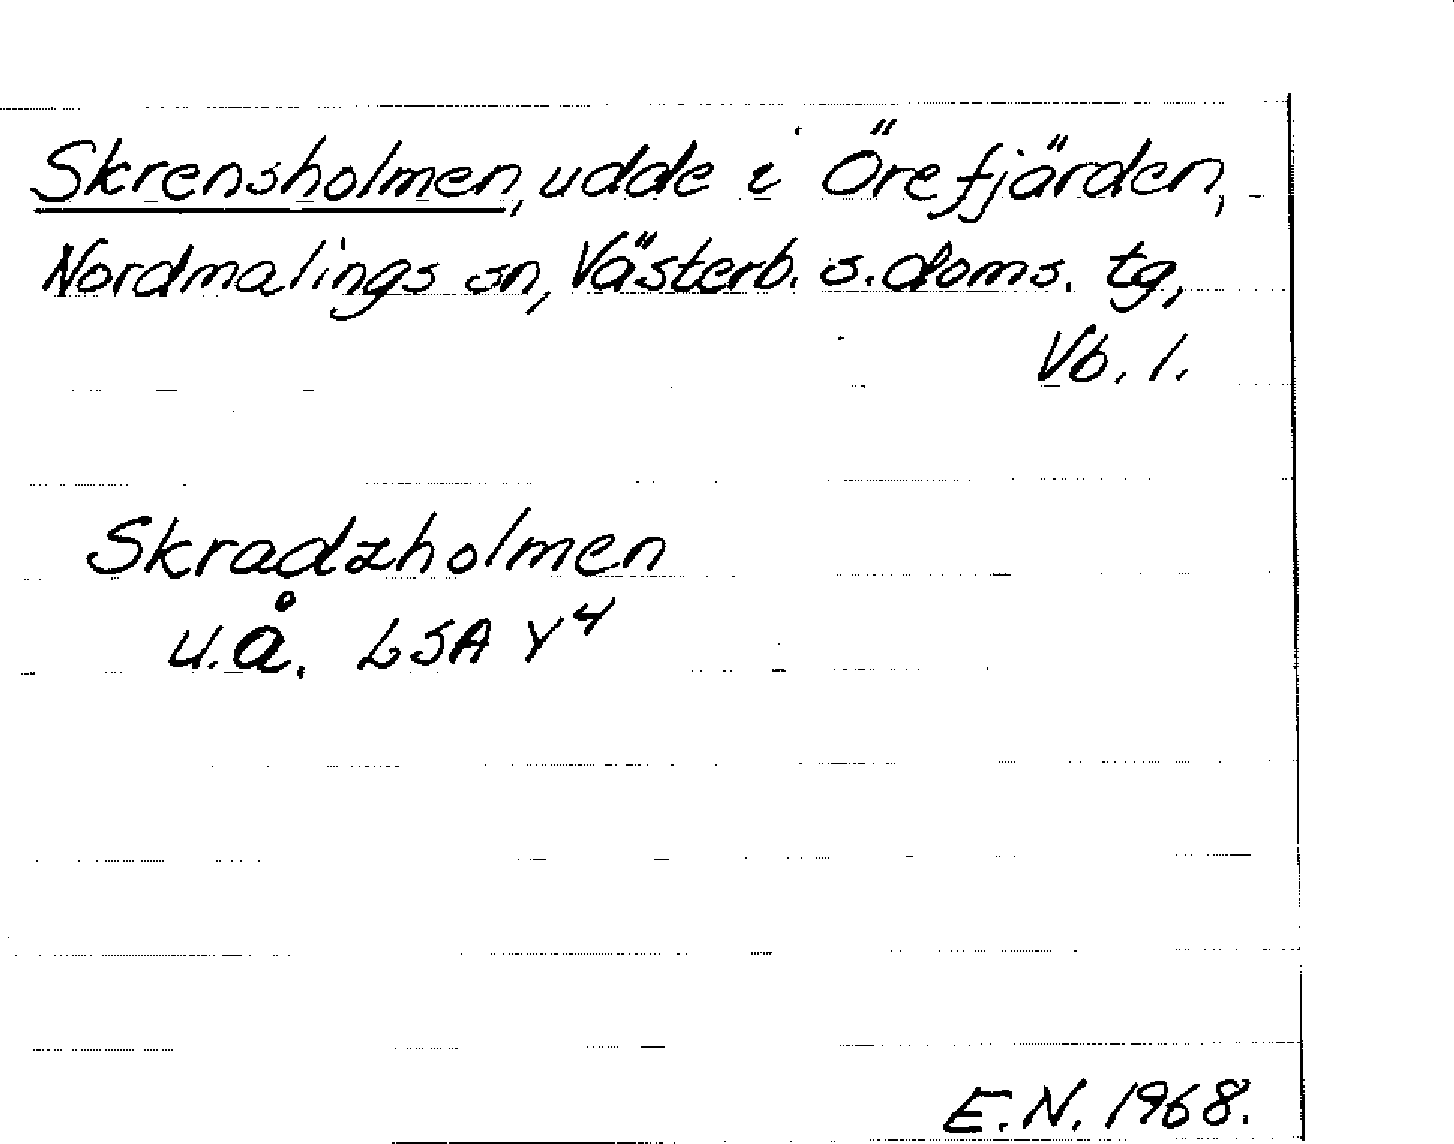 Skrensholmen, udde i Örefjärden,
Nordmalings sn, Västerb. s. doms. tg,
Vb. 1.
Skradzholmen
u.å. LSA Y4
E.N. 1968.